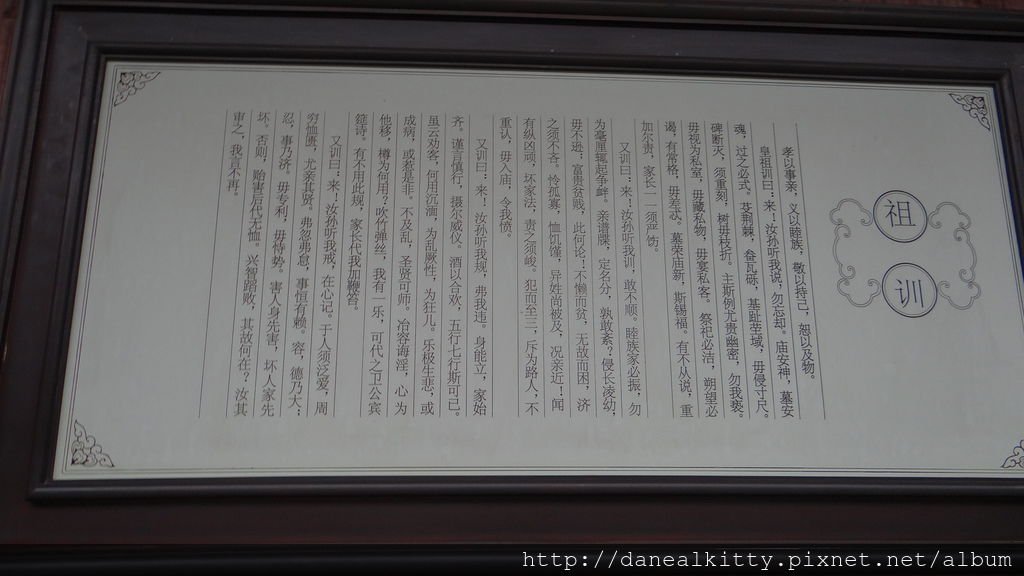 祖训
孝以事亲，义以睦族，敬以持己，恕以及物。
皇祖训曰：来！汝孙听我说，勿忘却。庙安神，墓安
魂，过之必式。芟荆棘，畚瓦砾，基趾茔域，毋侵寸尺。
碑断灭，须重刻，树毋枝折。主斯例尤贵幽密，勿我亵。
毋视为私室，毋藏私物，毋宴私客。祭祀必洁，朔望必
谒，有常格，毋差忒。墓荣庙新，斯锡福。有不从说，重
加尔责，家长一一须严饬。
又训曰：来！汝孙听我训，敢不顺。睦族家必振，勿
为毫厘辄起争衅。亲谱牒，定名分，孰敢紊？侵长凌幼，
毋不逊；富贵贫贱，此何论！不懒而贫，无故而困，济
之须不吝。怜孤寡，恤饥馑，异姓尚被及，况亲近！闻
有纵凶顽，坏家法，责之须峻。犯而至三，斥为路人，不
重认，毋入庙，令我愤。
又训曰：来！汝孙听我规，弗我违。身能立，家始
齐。谨言慎行，摄尔威仪。酒以合欢，五行七行斯可已。
虽云劝客，何用沉湎，为乱厥性，为狂儿。乐极生悲，或
成病，或惹是非。不及乱，圣贤可师。冶容诲淫，心为
他移，樽为何用？吹竹弹丝，我有一乐，可代之卫公宾
筵诗。有不用此规，家长代我加鞭笞。
又训曰：来！汝孙听我戒，在心记。于人须泛爱，周
穷恤匮，尤亲其贤。弗忽弗怠，事恒有赖。容，德乃大；
忍，事乃济。毋专利，毋恃势。害人身先害，坏人家先
坏，否则，贻害后代无恤。兴智蹈败，其故何在？汝其
审之，我言不再。
http://danealkitty.pixnet.net/album